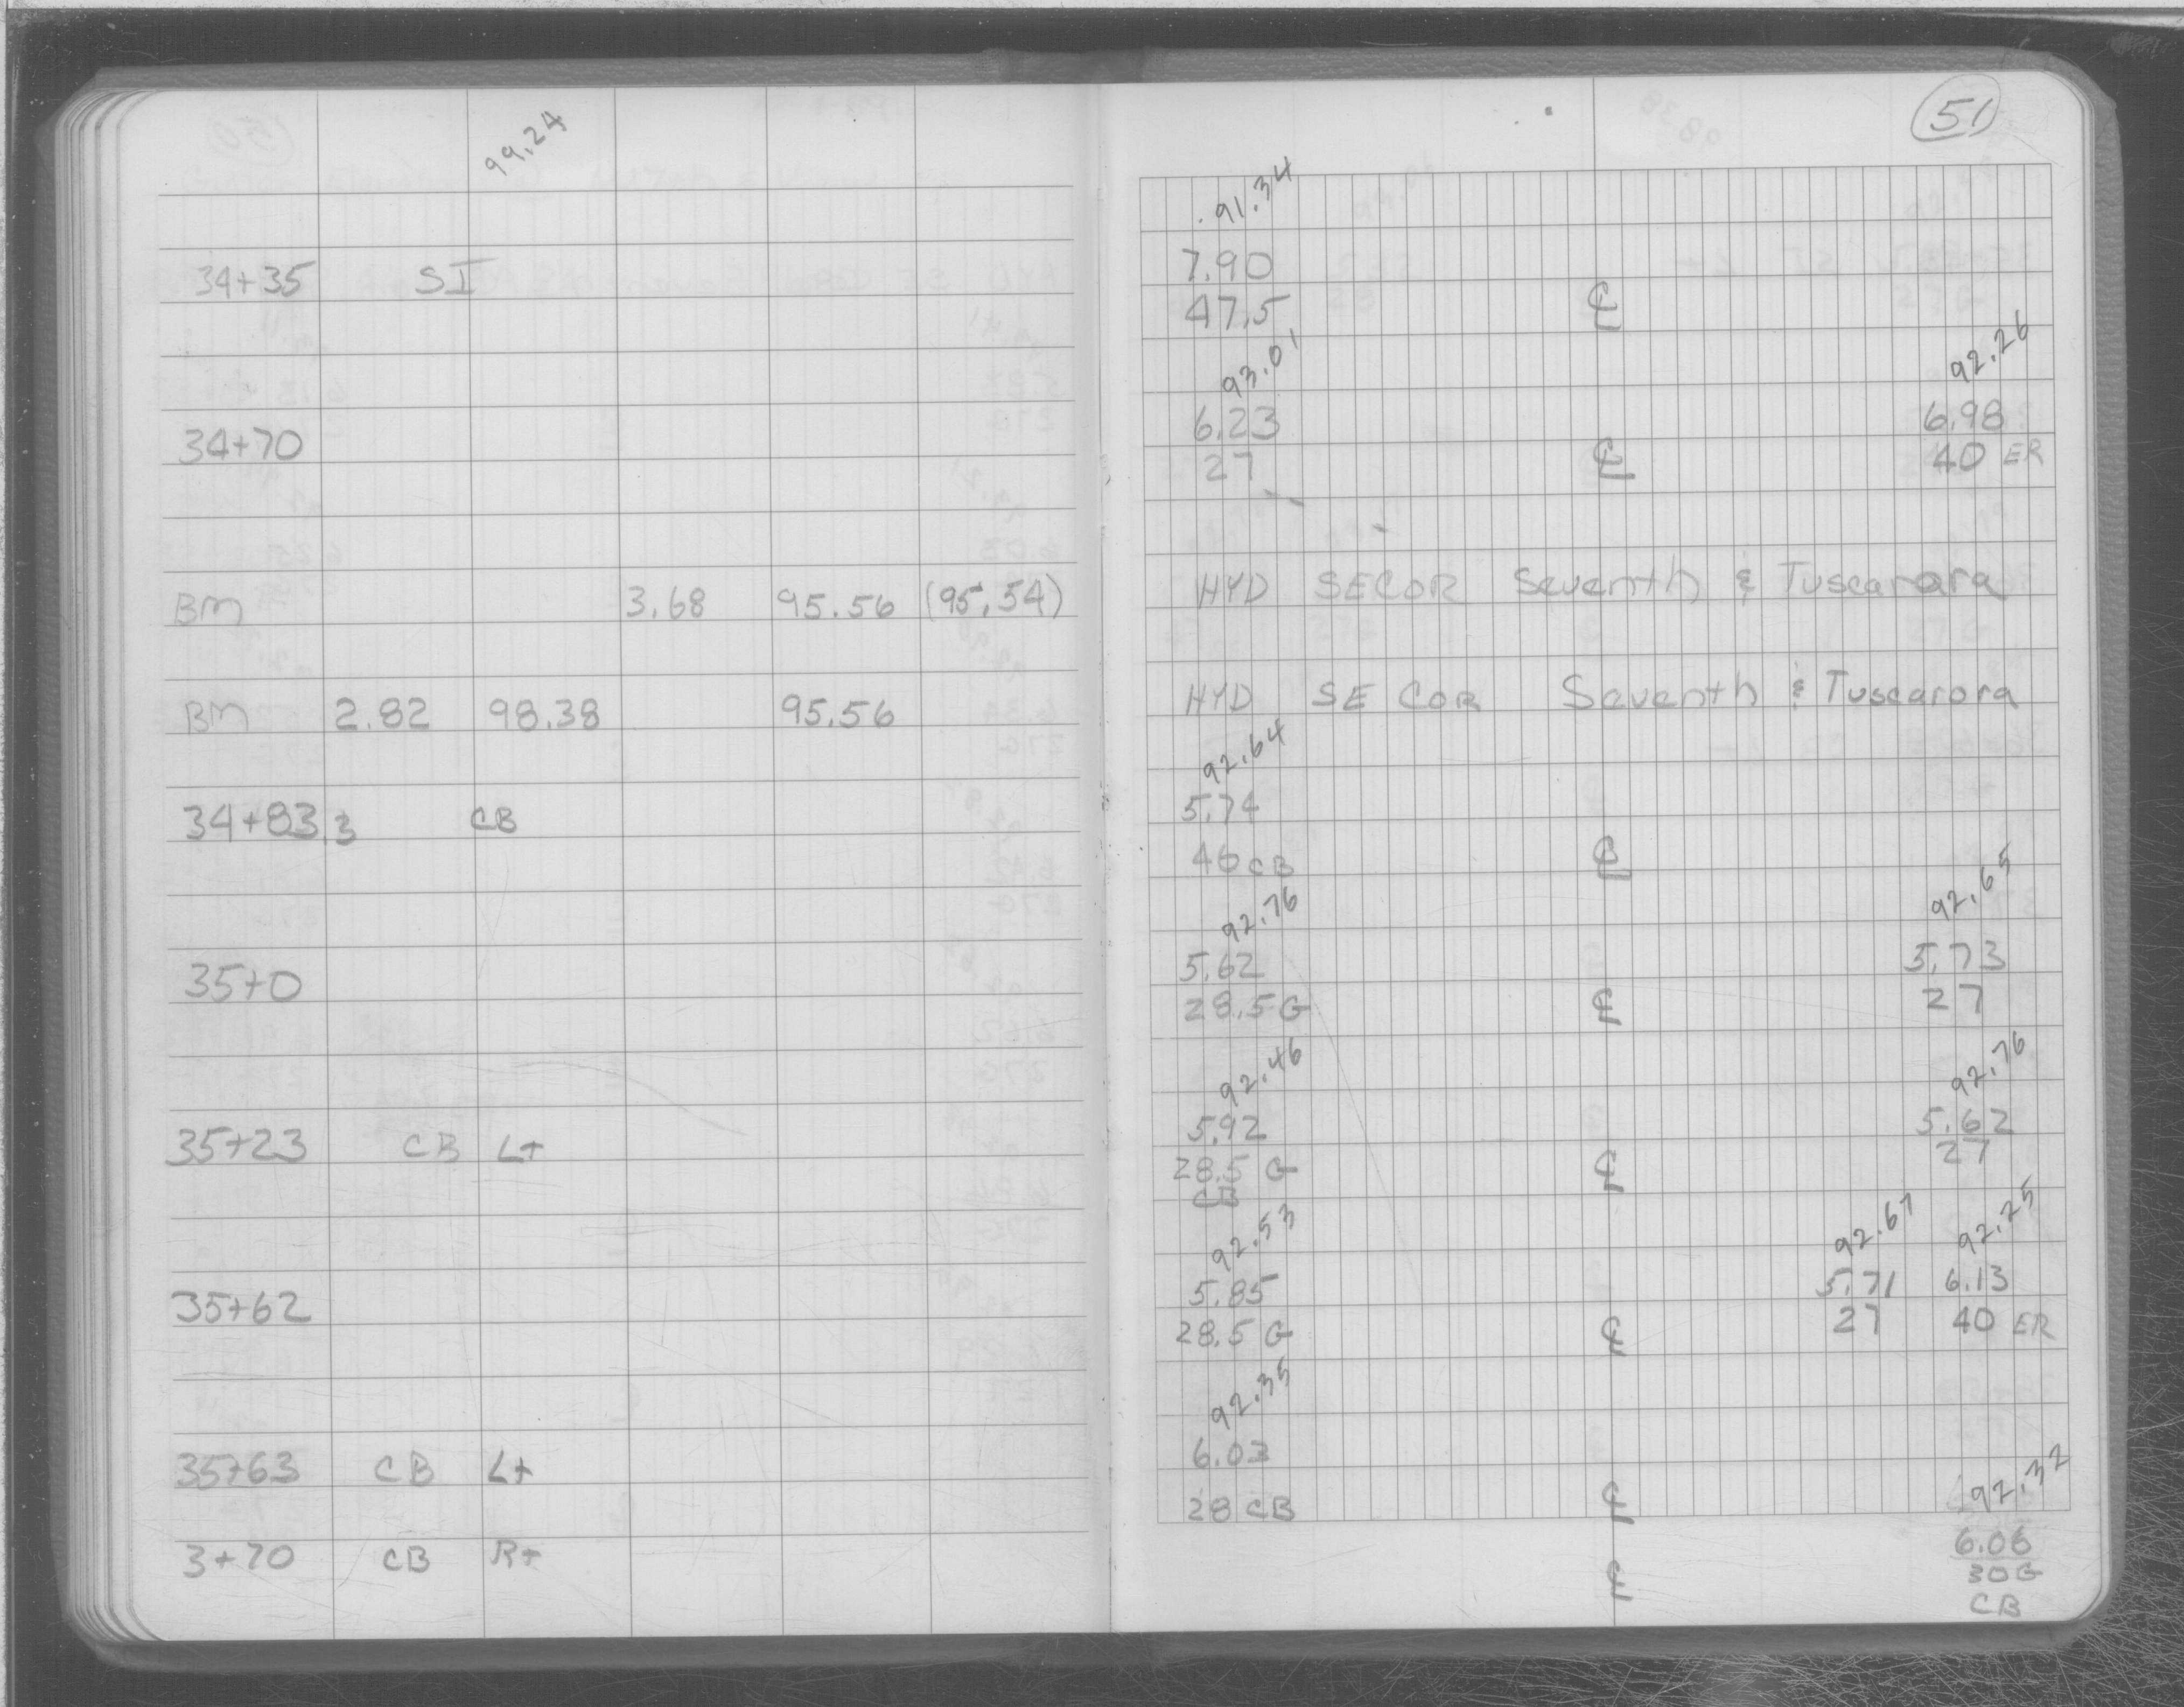 99.24
51
91.34
34+35 SI 7.90
47.5 ℄
93.01 92.26
6.23 6.98
34+70 27 ℄ 40 ER
BM 3.68 95.56 (95.54) HYD SECOR Seventh & Tuscarara
BM 2.82 98.38 95.56 HYD SE COR Seventh & Tuscarora
92.64
34+83.3 CB 5.74
46 CB ℄
92.76 92.65
35+0 5.62 5.73
28.5 G ℄ 27
92.46 92.76
35+23 CB L+ 5.92 5.62
28.5 G ℄ 27
CB
92.53 92.67 92.25
35+62 5.85 5.71 6.13
28.5 G ℄ 27 40 ER
92.35
35+63 CB L+ 6.03
28 CB ℄ 92.32
3+70 CB R+ ℄ 6.06
30 G
CB